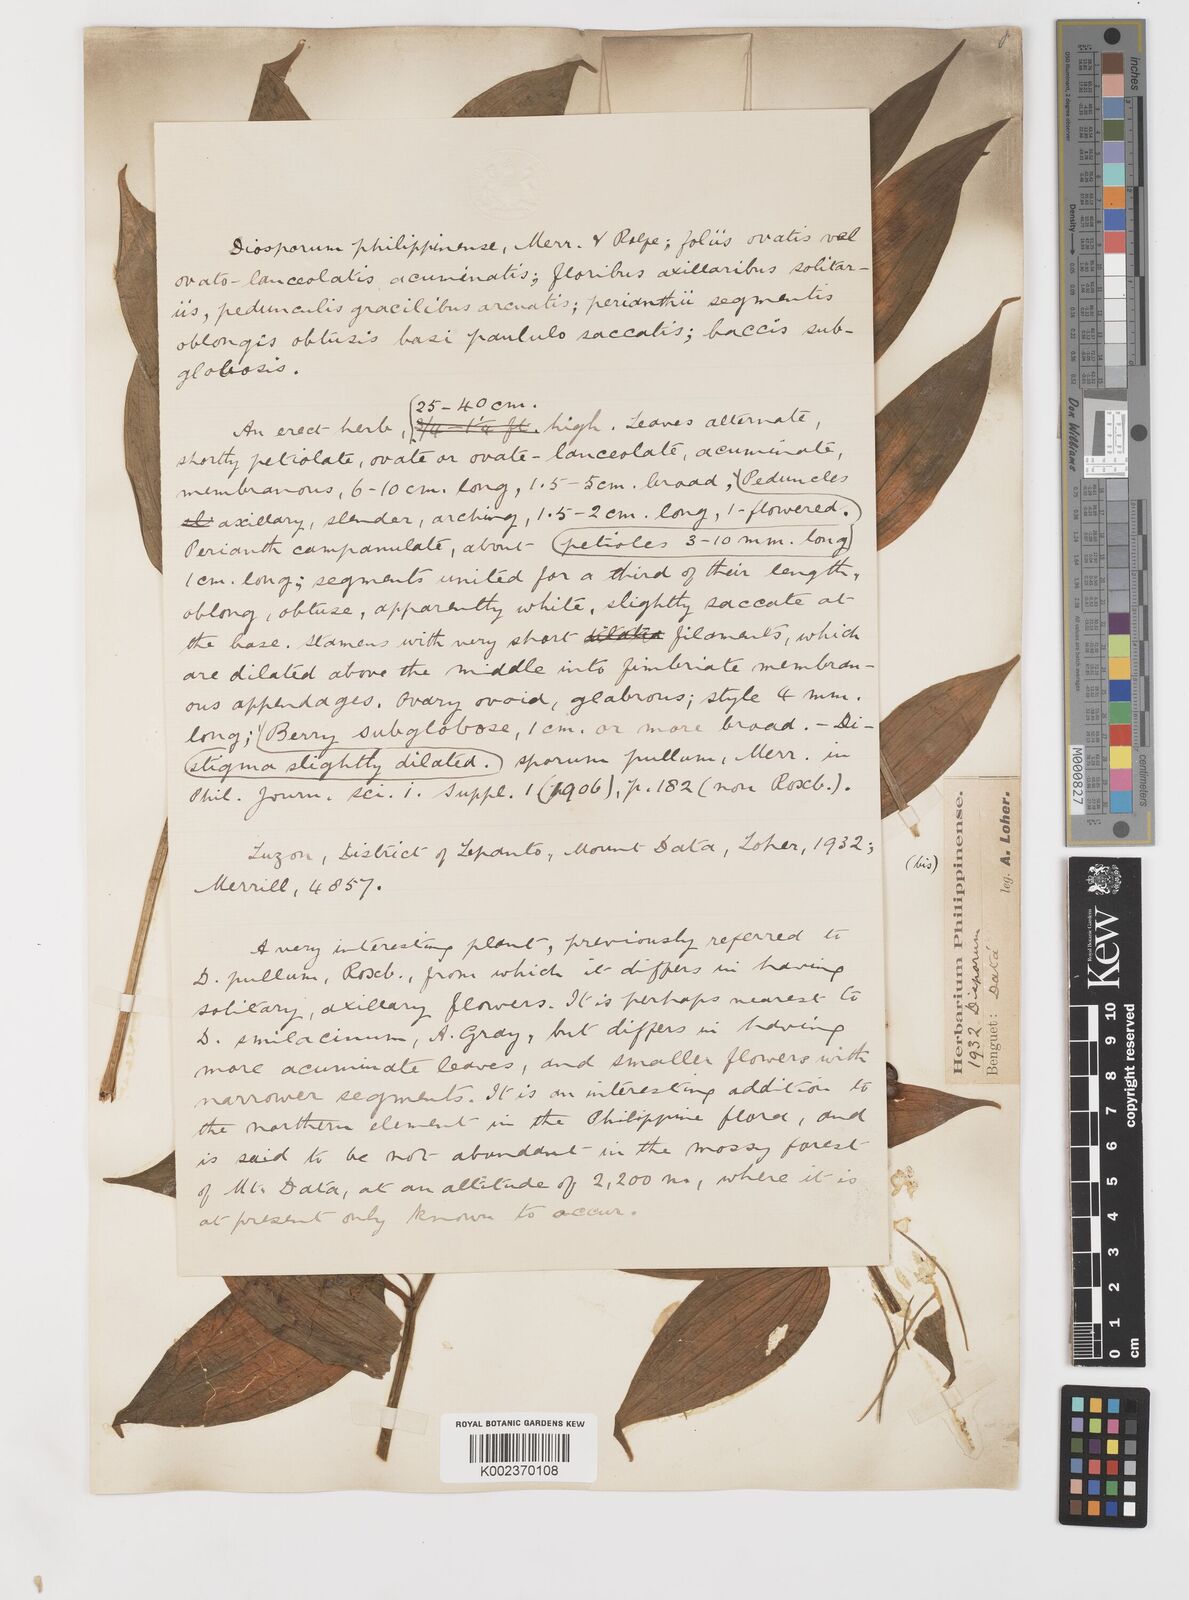 Diosporum philippinense, Merr. & Rolfe; foliis ovatis vel
ovato-lanceolatis acuminatis; floribus axillaribus solitar-
iis, pedunculis gracilibus arcuatis; perianthii segmentis
oblongis obtusis basi paululo saccatis; baccis sub-
globosis.
25-40 cm.
An erect herb, 3/4 - 1 1/4 ft. high. Leaves alternate,
shortly petiolate, ovate or ovate-lanceolate, acuminate,
membranous, 6-10 cm. long, 1.5-5 cm. broad; Peduncles
sl axillary, slender, arching, 1.5-2 cm. long, 1-flowered.
Perianth campanulate, about petioles 3-10 mm. long
1 cm. long; segments united for a third of their length,
oblong, obtuse, apparently white, slightly saccate at
the base. Stamens with very short dilated filaments, which
are dilated above the middle into fimbriate membran-
ous appendages. Ovary ovoid, glabrous; style 4 mm.
long; Berry subglobose, 1 cm. or more broad. - Di-
stigma slightly dilated. sporum pullum, Merr. in
Phil. Journ. Sci. i. Suppl. 1 (1906), p. 182 (non Roxb.).
Luzon, District of Lepanto, Mount Data, Loher, 1932;
Merrill, 4857.
A very interesting plant, previously referred to
D. pullum, Roxb., from which it differs in having
solitary, axillary flowers. It is perhaps nearest to
D. smilacinum, A. Gray, but differs in having
more acuminate leaves, and smaller flowers with
narrower segments. It is an interesting addition to
the northern element in the Philippine flora, and
is said to be not abundant in the mossy forest
of Mt. Data, at an altitude of 2,200 m., where it is
at present only known to occur.
(bis)
Herbarium Philippinense.
1932 Disporum
Benguet: Datá
leg. A. Loher.
ROYAL BOTANIC GARDENS KEW
K002370108
inches
Don Williams
M0000827
Kew
Royal Botanic Gardens
copyright reserved
0 1 2 3 4 5 6 7 8 9 10
cm